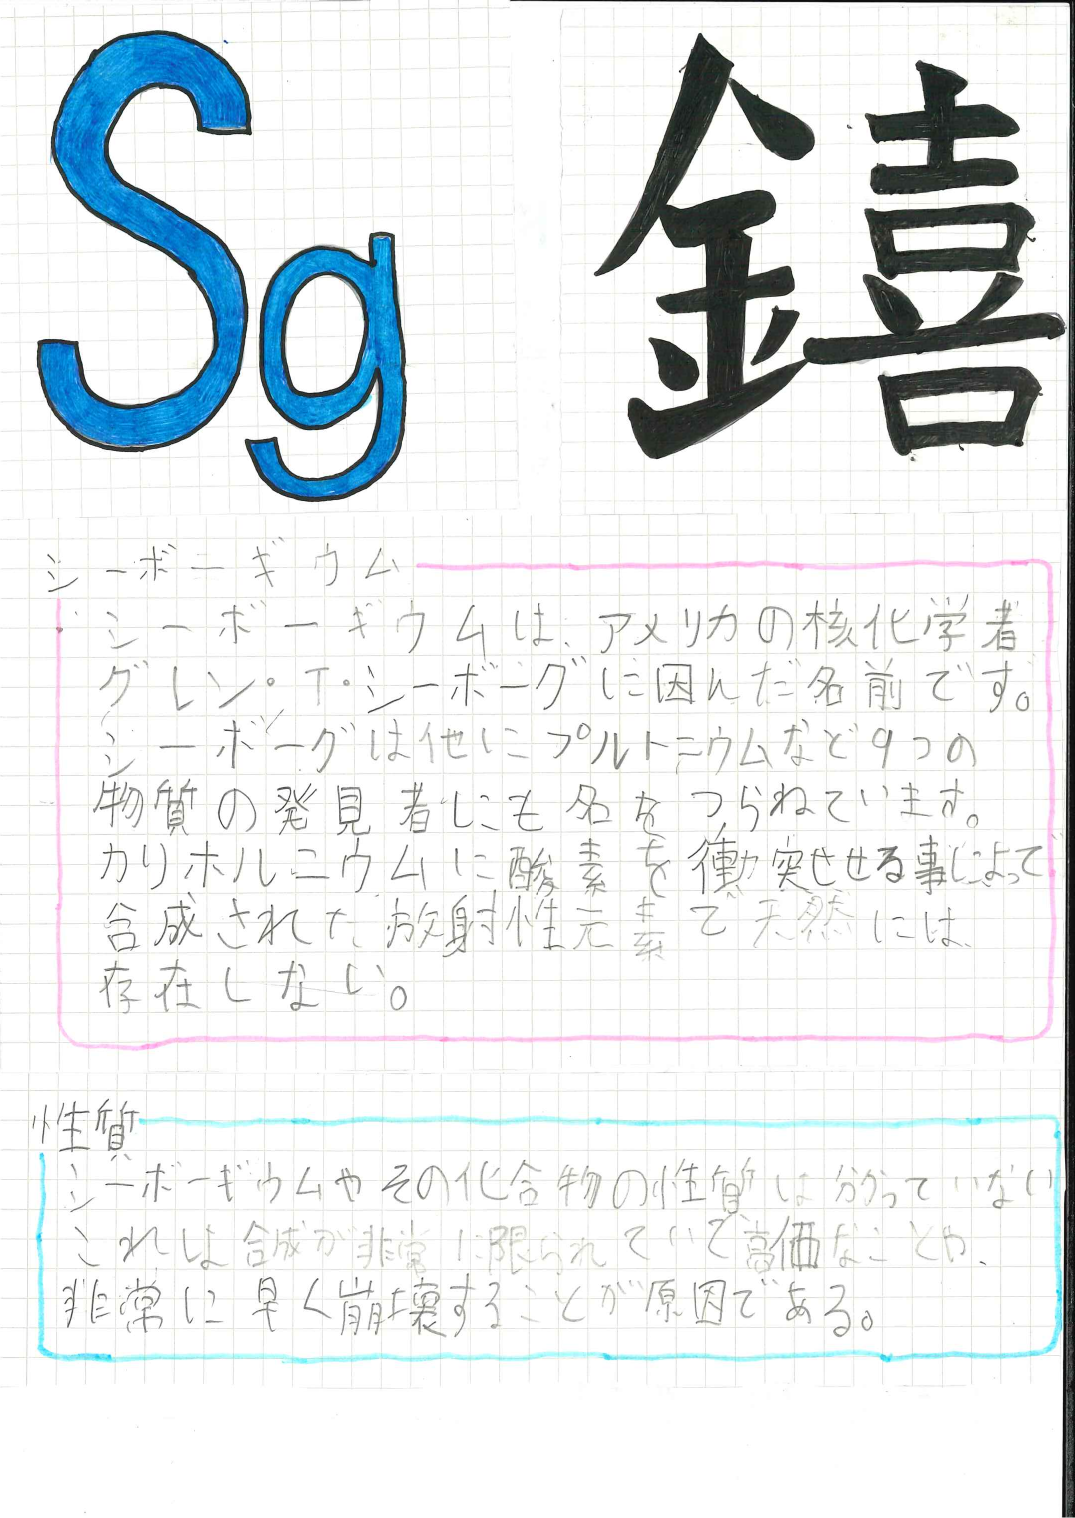 Sg
鐯
シーボーギウム
シーボーギウムは、アメリカの核化学者
グレン・T・シーボーグに因んだ名前です。
シーボーグは他にプルトニウムなど9つの
物質の発見者にも名をつらねています。
カリホルニウムに酸素を衝突させる事によって
合成された放射性元素で天然には
存在しない。
性質
シーボーギウムやその化合物の性質は分かっていない
これは合成が非常に限られていて高価なことや、
非常に早く崩壊することが原因である。